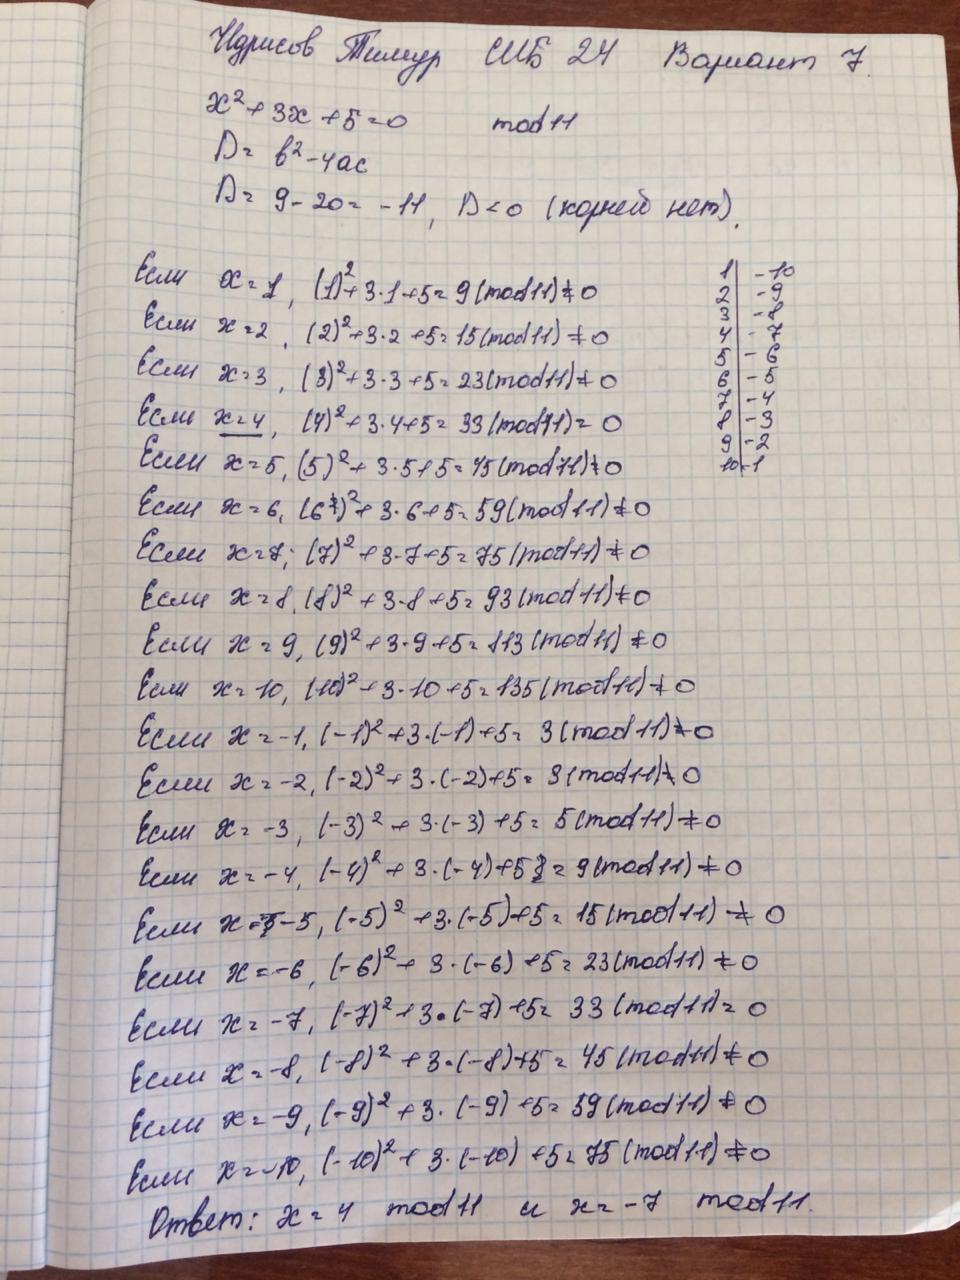 Идрисов Тимур СШБ 24 Вариант 7.
x²+3x+5=0 mod 11
D= b²-4ac
D= 9-20= -11, D<0 (корней нет).
Если x=1, (1)²+3·1+5=9(mod11)≠0
Если x=2, (2)²+3·2+5=15(mod11)≠0
Если x=3, (3)²+3·3+5=23(mod11)≠0
Если x=4, (4)²+3·4+5=33(mod11)=0
Если x=5, (5)²+3·5+5=45(mod11)≠0
Если x=6, (6)²+3·6+5=59(mod11)≠0
Если x=7, (7)²+3·7+5=75(mod11)≠0
Если x=8, (8)²+3·8+5=93(mod11)≠0
Если x=9, (9)²+3·9+5=113(mod11)≠0
Если x=10, (10)²+3·10+5=135(mod11)≠0
Если x=-1, (-1)²+3·(-1)+5=3(mod11)≠0
Если x=-2, (-2)²+3·(-2)+5=3(mod11)≠0
Если x=-3, (-3)²+3·(-3)+5=5(mod11)≠0
Если x=-4, (-4)²+3·(-4)+5=9(mod11)≠0
Если x=-5, (-5)²+3·(-5)+5=15(mod11)≠0
Если x=-6, (-6)²+3·(-6)+5=23(mod11)≠0
Если x=-7, (-7)²+3·(-7)+5=33(mod11)=0
Если x=-8, (-8)²+3·(-8)+5=45(mod11)≠0
Если x=-9, (-9)²+3·(-9)+5=59(mod11)≠0
Если x=-10, (-10)²+3·(-10)+5=75(mod11)≠0
Ответ: x=4 mod11 и x=-7 mod11.
1 | -10
2 | -9
3 | -8
4 | -7
5 | -6
6 | -5
7 | -4
8 | -3
9 | -2
10 | -1